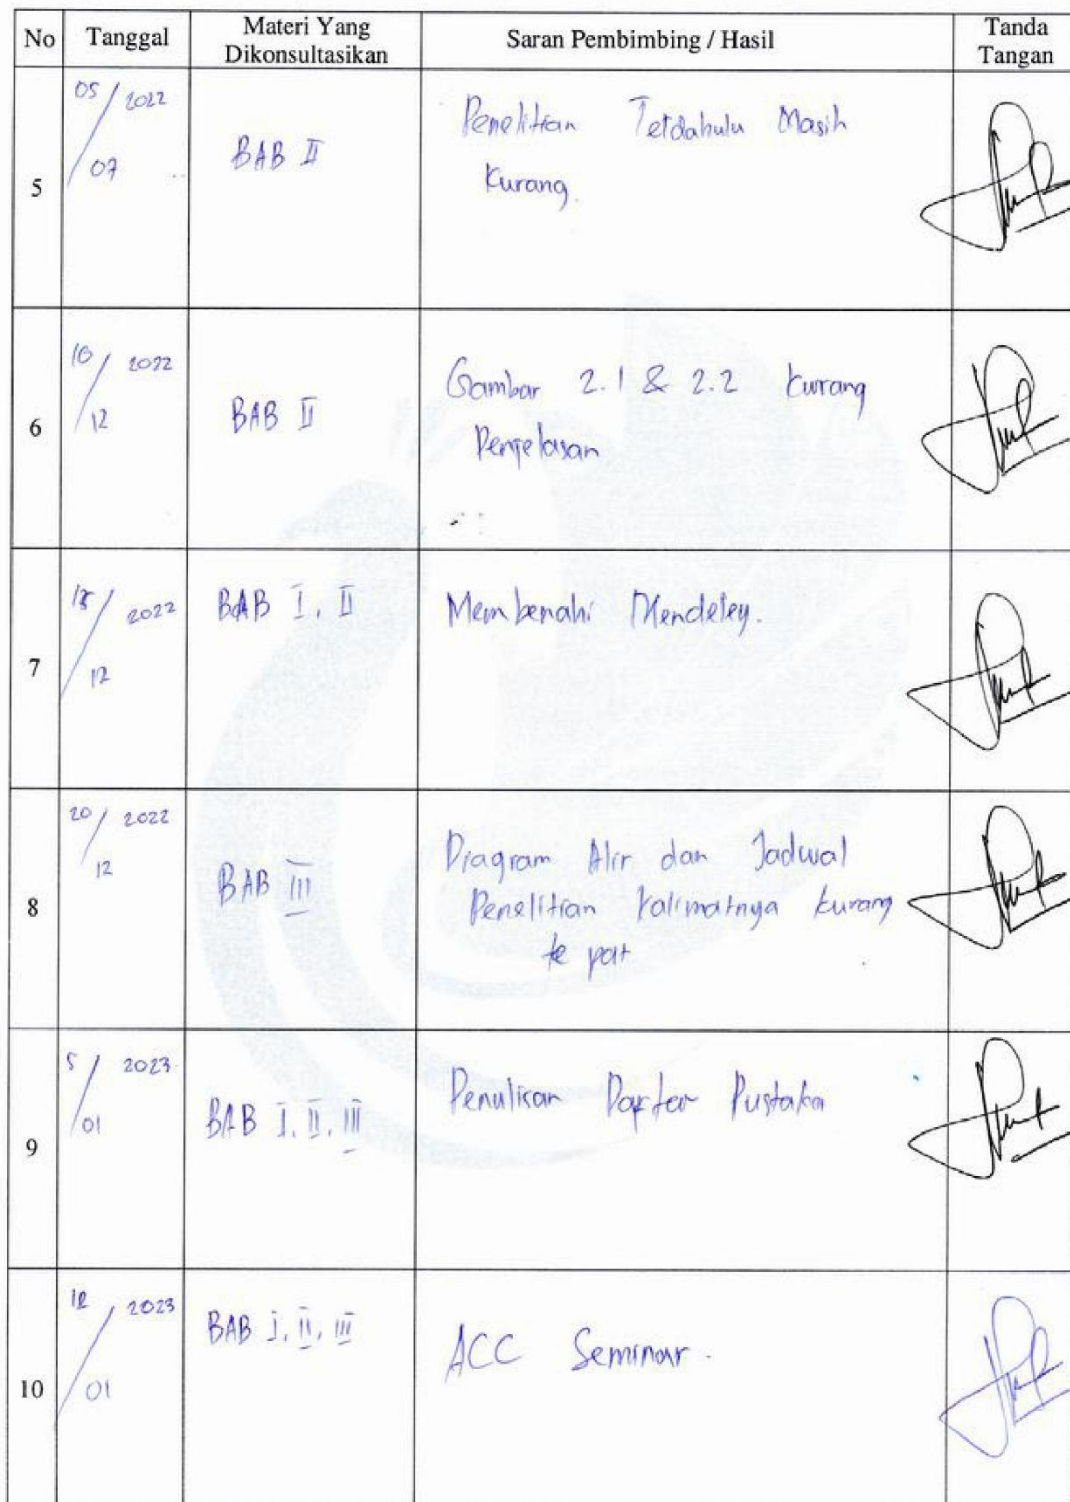 No Tanggal Materi Yang Dikonsultasikan Saran Pembimbing / Hasil Tanda Tangan
5 05/07 2022 BAB II Penelitian Terdahulu Masih
Kurang.
6 10/12 2022 BAB II Gambar 2.1 & 2.2 kurang
Penjelasan
7 /12 2022 BAB I, II Membenahi Mendeley.
8 20/12 2022 BAB III Diagram Alir dan Jadwal
Penelitian kalimatnya kurang
tepat
9 5/01 2023 BAB I, II, III Penulisan Daftar Pustaka
10 /01 2023 BAB I, II, III ACC Seminar.